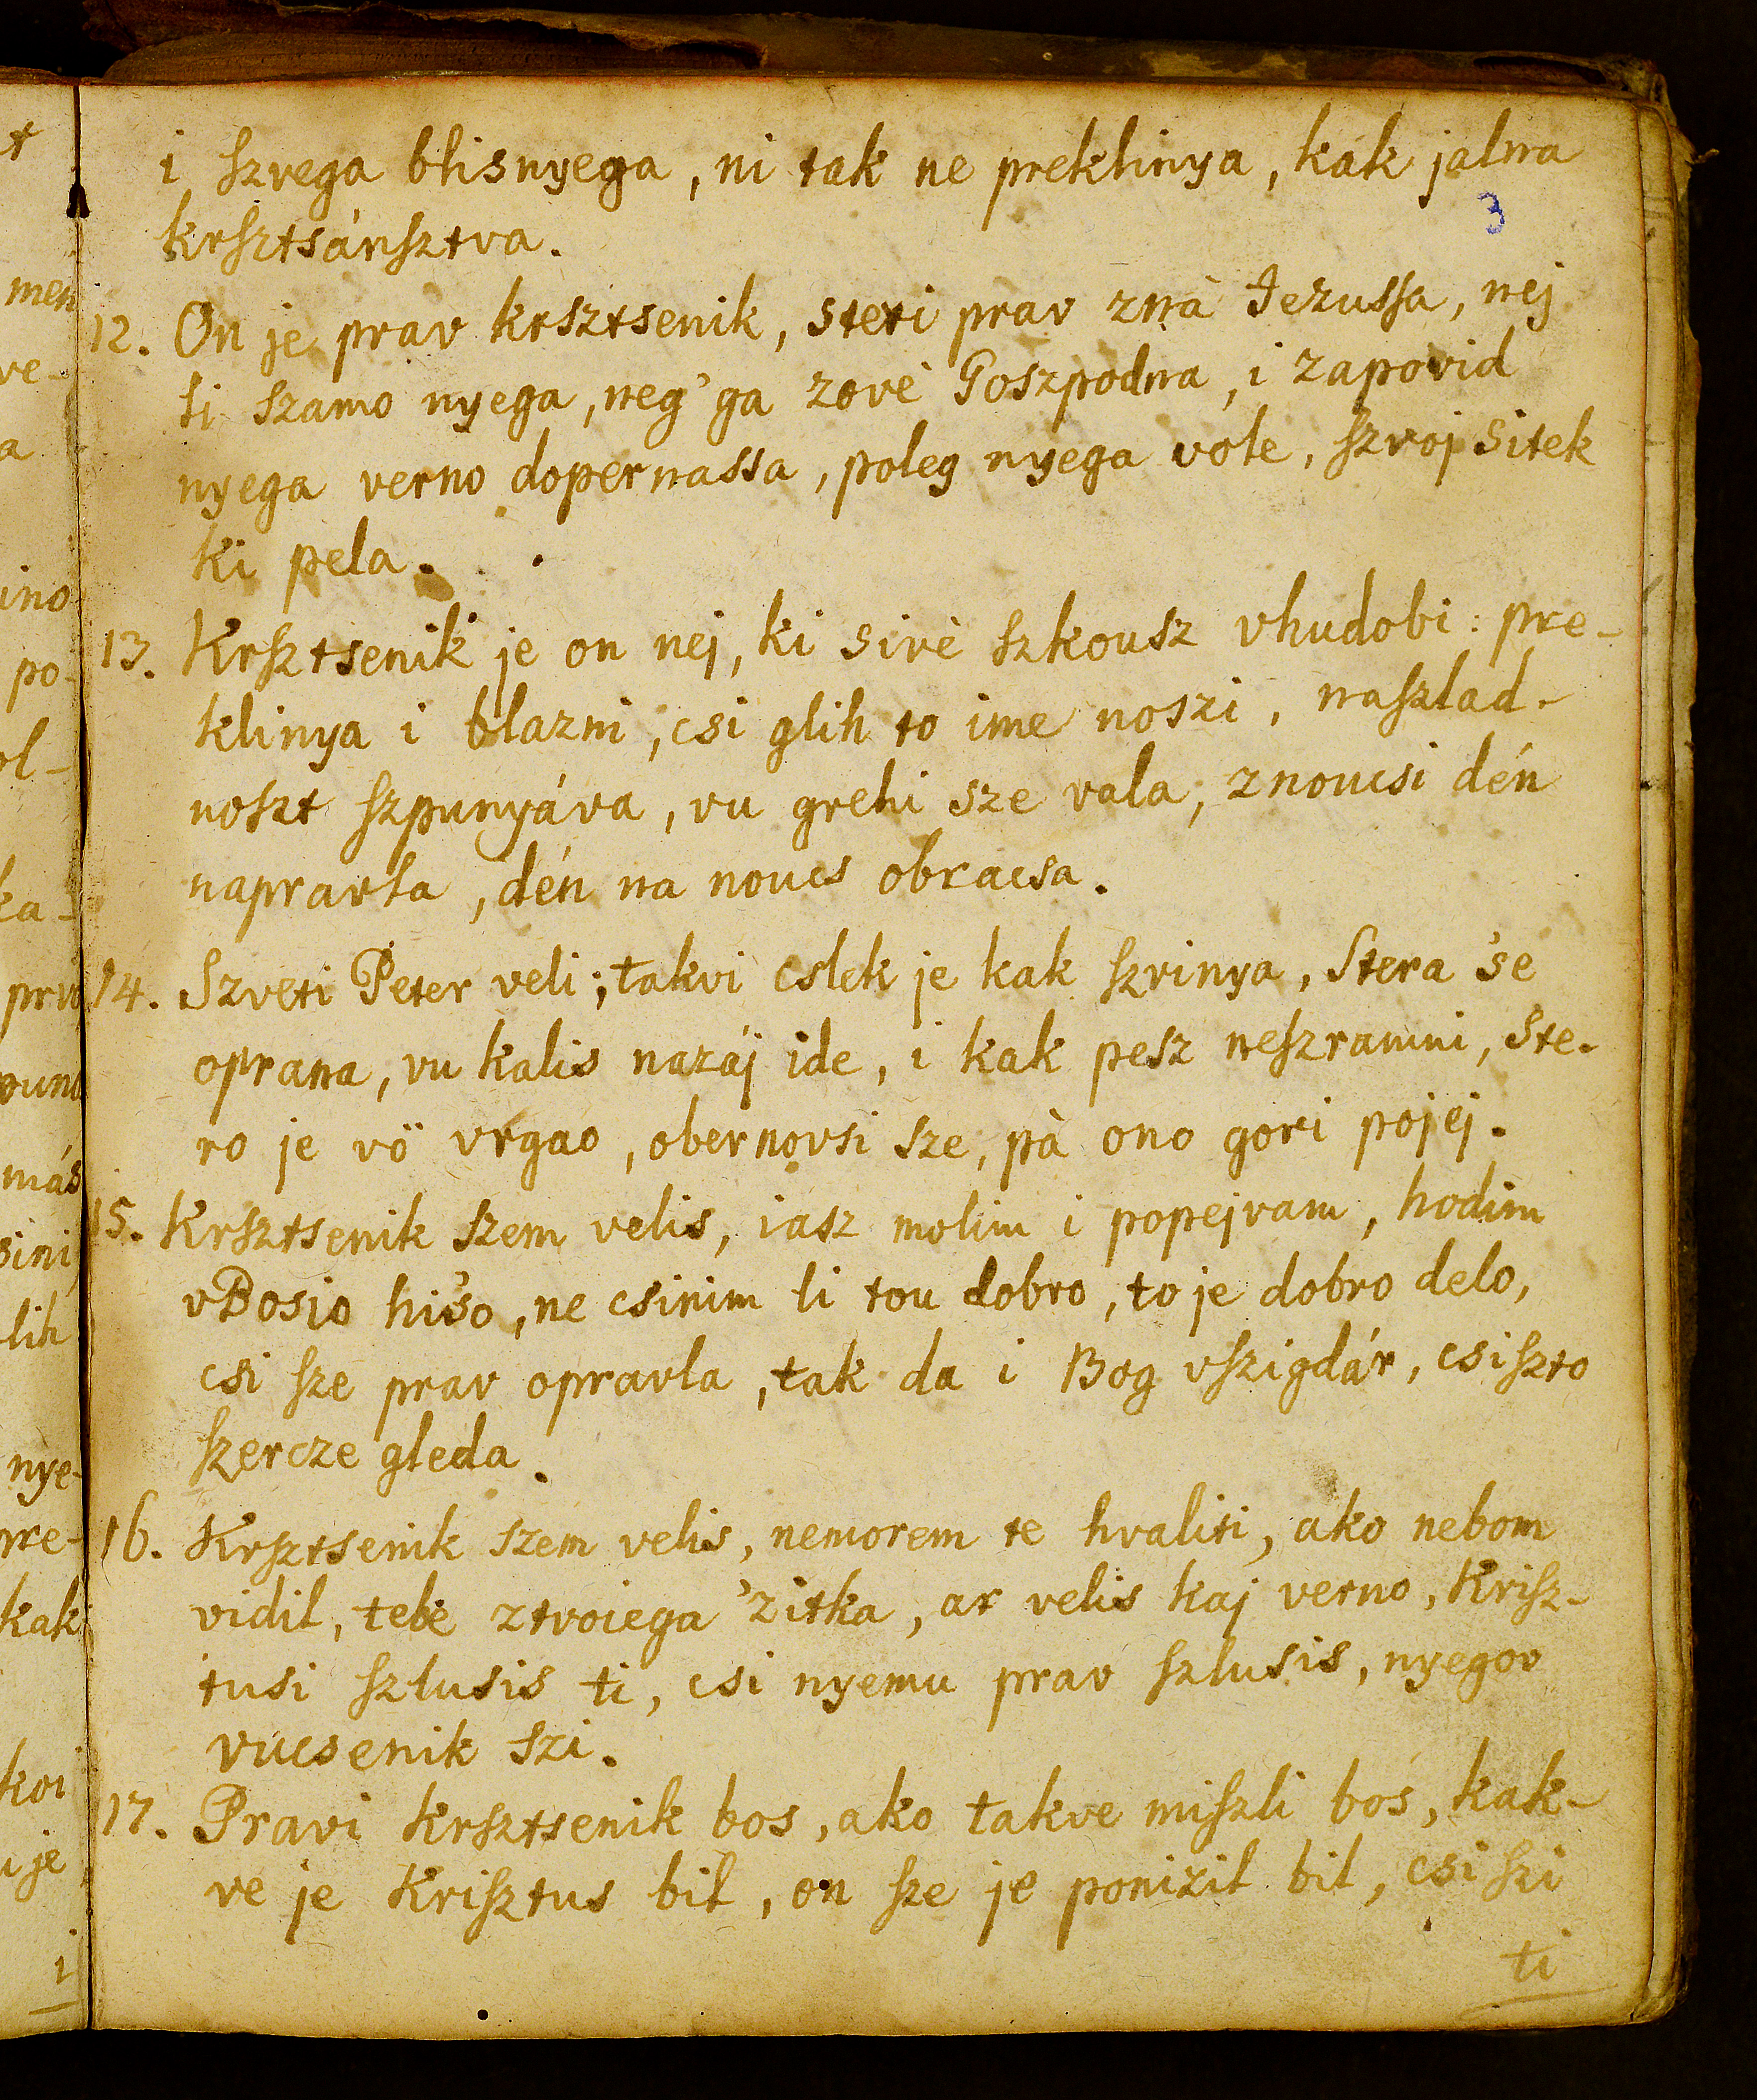 i ſzvega blisnyega, ni tak ne preklinya, kák jalna
3
krſztsánſztva.
12. On je prav krsztsenik, steri prav znà Jezuſsa, nej
li szamo nyega, neg' ga zovè Goszpodna, i zapovid
nyega verno dopernassa, poleg nyega vole, ſzvoj sitek
ki pela.
13. Krſztsenik je on nej, ki sivè ſzkousz vhudobi: pre-
klinya i blazni, csi glih to ime noszi, naſzlad-
noſzt ſzpunyáva, vu grehi sze vala, znoucsi dén
napravla, dén na noucs obracsa.
14. Szveti Peter veli; takvi cslek je kak ſzvinya, ſtera 'se
oprana, vu kalis nazáj ide, i kak pesz neſzramni, ste-
ro je vö vrgao, obernovsi sze, pà ono gori pojej.
15. Krſztsenik szem velis, iasz molim i popejvam, hodim
vBosjo hi'so, ne csinim li tou dobro, to je dobro delo,
csi ſze prav opravla, tak da i Bog vſzigdár, csiſzto
ſzercze gleda.
16. Krſztsenik szem velis, nemorem te hvaliti, ako nebom
vidil, tebe ztvoiega 'zitka, ar velis kaj verno, Kriſz-
tusi ſzlusis ti, csi nyemu prav ſzlusis, nyegov
vucsenik szi.
17. Pravi krſztsenik bos, ako takve miſzli bos, kak-
ve je Kriſztus bil, on ſze je ponizil bil, csi ſzi
ti